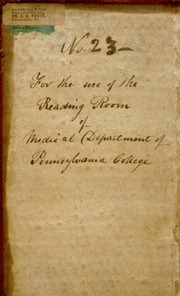 DR. B. B. FOOTE,
No. 23—
For the use of the
Reading Room
of
Medical Department of
Pennsylvania College